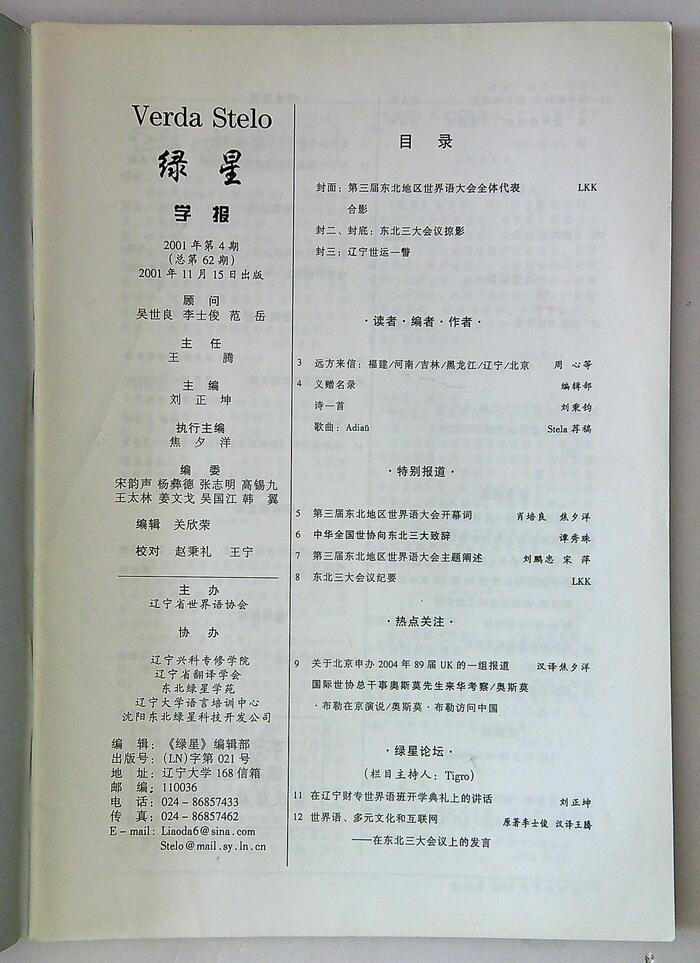 Verda Stelo
绿星
学报
2001年第4期
(总第62期)
2001年11月15日出版
顾 问
吴世良 李士俊 范 岳
主 任
王 腾
主 编
刘正坤
执行主编
焦夕洋
编 委
宋韵声 杨彝德 张志明 高锡九
王太林 姜文戈 吴国江 韩 翼
编辑 关欣荣
校对 赵秉礼 王宁
主 办
辽宁省世界语协会
协 办
辽宁兴科专修学院
辽宁省翻译学会
东北绿星学苑
辽宁大学语言培训中心
沈阳东北绿星科技开发公司
编 辑:《绿星》编辑部
出版号:(LN)字第021号
地 址:辽宁大学168信箱
邮 编:110036
电 话:024-86857433
传 真:024-86857462
E-mail:Liaoda6@sina.com
Stelo@mail.sy.ln.cn
目 录
封面:第三届东北地区世界语大会全体代表 LKK
合影
封二、封底:东北三大会议掠影
封三:辽宁世运一瞥
·读者·编者·作者·
3 远方来信:福建/河南/吉林/黑龙江/辽宁/北京 周 心等
4 义赠名录 编辑部
诗一首 刘秉钧
歌曲:Adiaŭ Stela荐稿
·特别报道·
5 第三届东北地区世界语大会开幕词 肖培良 焦夕洋
6 中华全国世协向东北三大致辞 谭秀珠
7 第三届东北地区世界语大会主题阐述 刘鹏忠 宋 萍
8 东北三大会议纪要 LKK
·热点关注·
9 关于北京申办2004年89届UK的一组报道 汉译焦夕洋
国际世协总干事奥斯莫先生来华考察/奥斯莫
·布勒在京演说/奥斯莫·布勒访问中国
·绿星论坛·
(栏目主持人:Tigro)
11 在辽宁财专世界语班开学典礼上的讲话 刘正坤
12 世界语、多元文化和互联网 原著李士俊 汉译王腾
——在东北三大会议上的发言